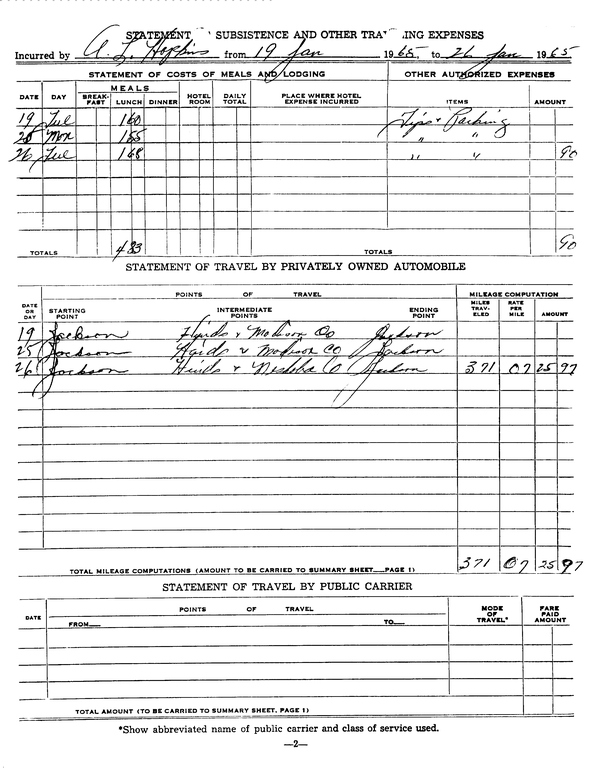 STATEMENT SUBSISTENCE AND OTHER TRA ING EXPENSES
Incurred by A. L. Hopkins from 19 Jan 1965, to 26 Jan 1965
STATEMENT OF COSTS OF MEALS AND LODGING OTHER AUTHORIZED EXPENSES
DATE DAY MEALS BREAK-FAST LUNCH DINNER HOTEL ROOM DAILY TOTAL PLACE WHERE HOTEL EXPENSE INCURRED ITEMS AMOUNT
19 Tue 160 Tips & Parking
25 Mon 155 " "
26 Tue 168 " " 90
TOTALS 483 TOTALS 90
STATEMENT OF TRAVEL BY PRIVATELY OWNED AUTOMOBILE
POINTS OF TRAVEL MILEAGE COMPUTATION
DATE OR DAY STARTING POINT INTERMEDIATE POINTS ENDING POINT MILES TRAV-ELED RATE PER MILE AMOUNT
19 Jackson Hinds & Madison Co Jackson
25 Jackson Hinds & Madison Co Jackson
26 Jackson Hinds & Neshoba Co Jackson 371 07 25 97
TOTAL MILEAGE COMPUTATIONS (AMOUNT TO BE CARRIED TO SUMMARY SHEET PAGE 1) 371 07 25 97
STATEMENT OF TRAVEL BY PUBLIC CARRIER
DATE POINTS OF TRAVEL MODE OF TRAVEL* FARE PAID AMOUNT
FROM TO
TOTAL AMOUNT (TO BE CARRIED TO SUMMARY SHEET, PAGE 1)
*Show abbreviated name of public carrier and class of service used.
—2—